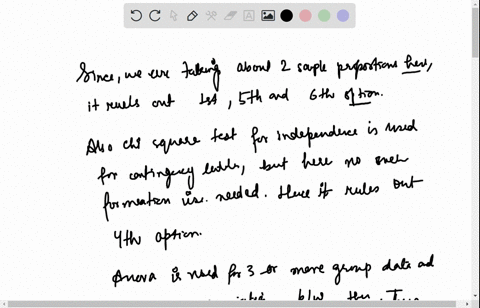 Since, we are talking about 2 sample proportions here,
it ruels out 1st, 5th and 6th option.
Also chi square test for independence is used
for contingency table, but here no such
formation is needed. Hence it rules out
4th option.
Anova is used for 3 or more group data ad